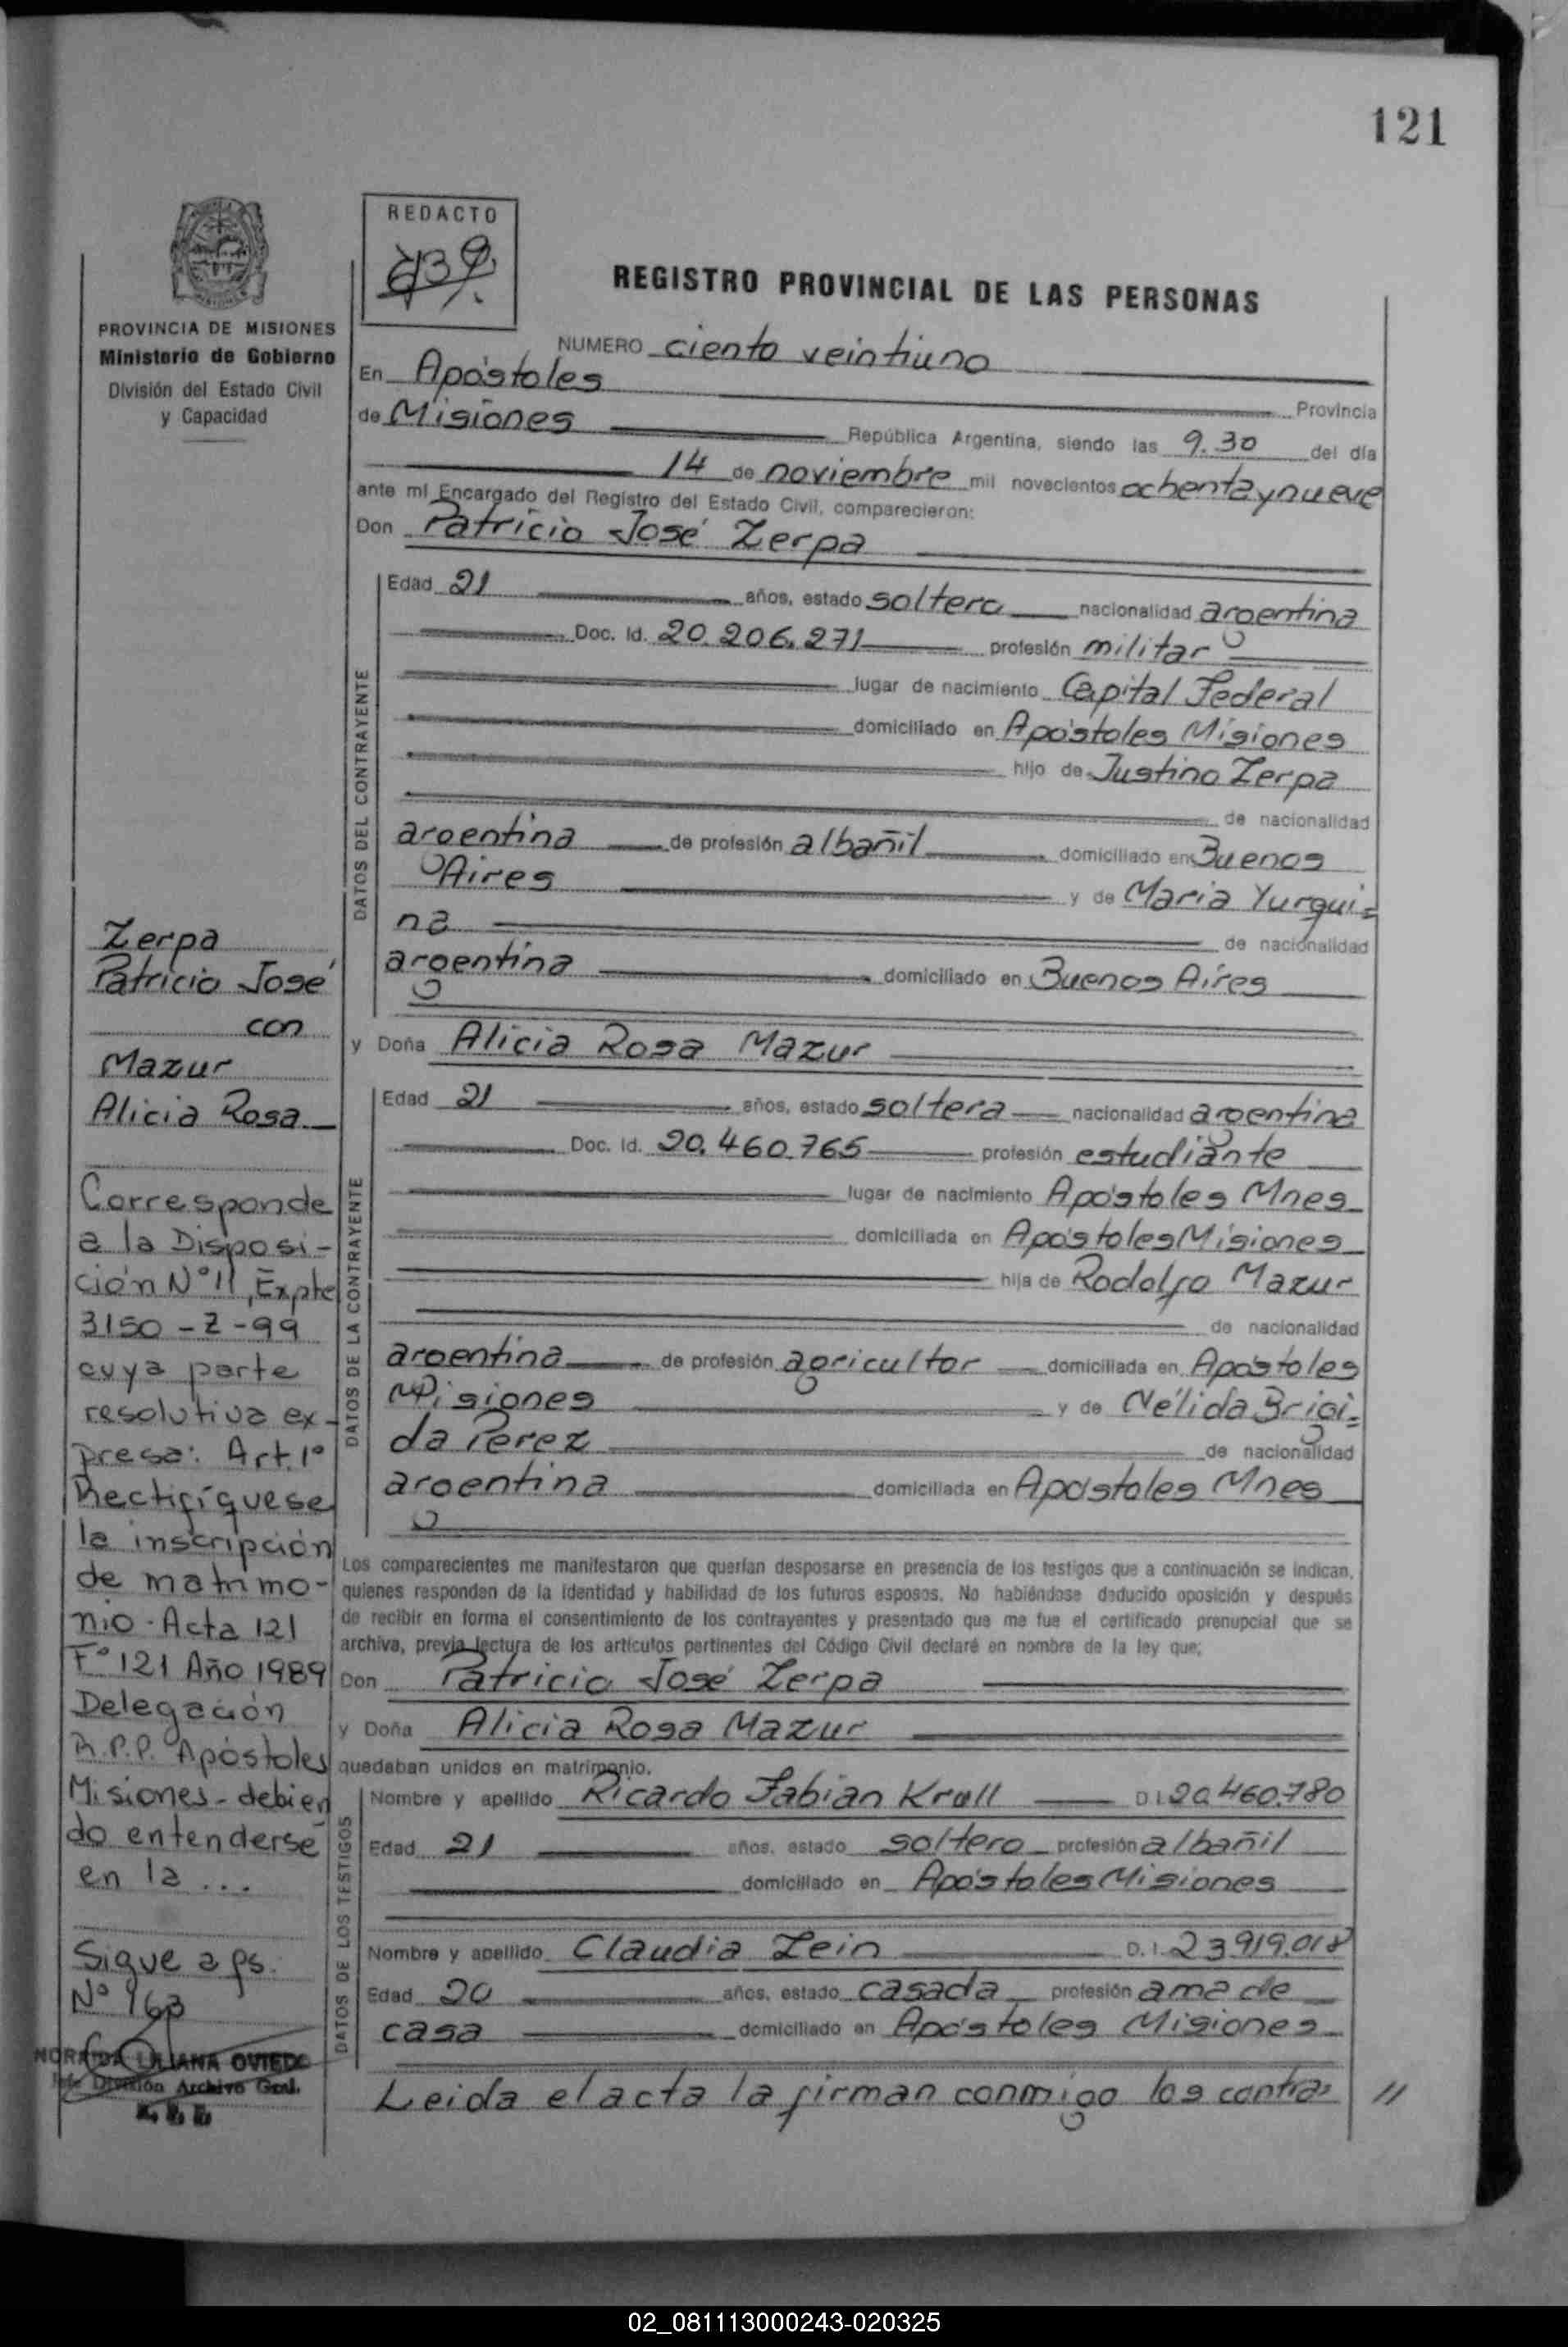 121
REDACTO
REGISTRO PROVINCIAL DE LAS PERSONAS
PROVINCIA DE MISIONES
Ministerio de Gobierno
División del Estado Civil
y Capacidad
NUMERO ciento veintiuno
En Apóstoles Provincia
de Misiones República Argentina, siendo las 9.30 del día
14 de noviembre mil novecientos ochenta y nueve
ante mi Encargado del Registro del Estado Civil, comparecieron:
Don Patricio José Zerpa
DATOS DEL CONTRAYENTE
Edad 21 años, estado soltero nacionalidad argentina
Doc. Id. 20.206.271 profesión militar
lugar de nacimiento Capital Federal
domiciliado en Apóstoles Misiones
hijo de Justino Zerpa
de nacionalidad
argentina de profesión albañil domiciliado en Buenos
Aires y de Maria Yurqui=
na de nacionalidad
argentina domiciliado en Buenos Aires
y Doña Alicia Rosa Mazur
DATOS DE LA CONTRAYENTE
Edad 21 años, estado soltera nacionalidad argentina
Doc. Id. 20.460.765 profesión estudiante
lugar de nacimiento Apóstoles Mnes
domiciliada en Apóstoles Misiones
hija de Rodolfo Mazur
de nacionalidad
argentina de profesión agricultor domiciliada en Apóstoles
Misiones y de Nélida Brigi=
da Perez de nacionalidad
argentina domiciliada en Apóstoles Mnes
Los comparecientes me manifestaron que querían desposarse en presencia de los testigos que a continuación se indican,
quienes responden de la identidad y habilidad de los futuros esposos. No habiéndose deducido oposición y después
de recibir en forma el consentimiento de los contrayentes y presentado que me fue el certificado prenupcial que se
archiva, previa lectura de los artículos pertinentes del Código Civil declaré en nombre de la ley que;
Don Patricio José Zerpa
y Doña Alicia Rosa Mazur
quedaban unidos en matrimonio.
DATOS DE LOS TESTIGOS
Nombre y apellido Ricardo Fabian Krall D.I. 20.460.780
Edad 21 años, estado soltero profesión albañil
domiciliado en Apóstoles Misiones
Nombre y apellido Claudia Zein D.I. 23.919.018
Edad 20 años, estado casada profesión ama de
casa domiciliado en Apóstoles Misiones
Leida el acta la firman conmigo los contra= //
Zerpa
Patricio José
con
Mazur
Alicia Rosa
Corresponde
a la Disposi-
ción Nº 11, Expte
3150-Z-99
cuya parte
resolutiva ex-
presa: Art. 1º
Rectifíquese
la inscripción
de matrimo-
nio - Acta 121
Fº 121 Año 1989
Delegación
R.P.P. Apóstoles
Misiones - debien
do entenderse
en la ...
Sigue a fs.
Nº 163
LILIANA OVIEDO
Jefe División Archivo Gral.
02_081113000243-020325